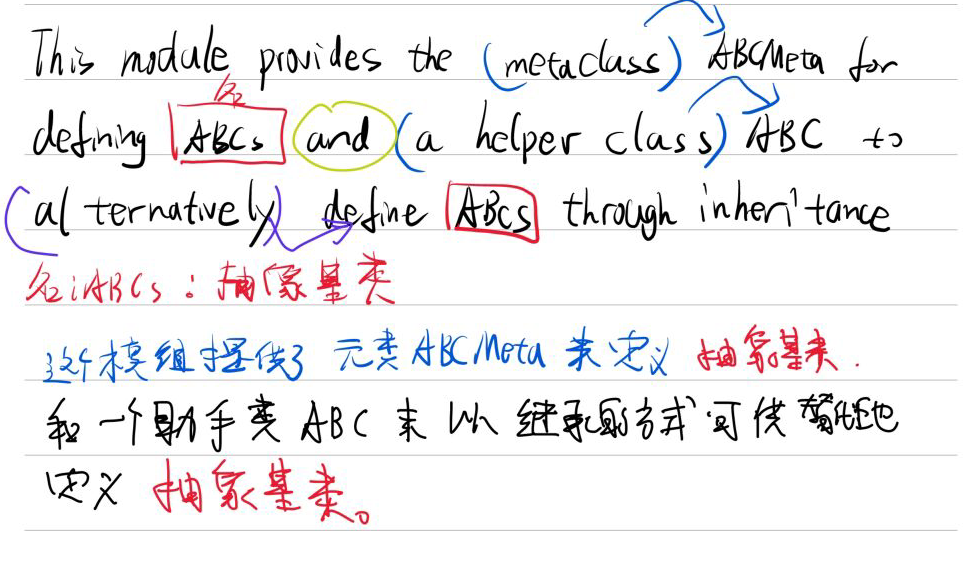 This module provides the (metaclass) ABCMeta for
名
defining ABCs and (a helper class) ABC to
(alternatively) define ABCs through inheritance
名:ABCs:抽象基类
这个模组提供了 元类ABCMeta 来定义 抽象基类.
和一个助手类ABC来以继承的方式可供替代地
定义 抽象基类。